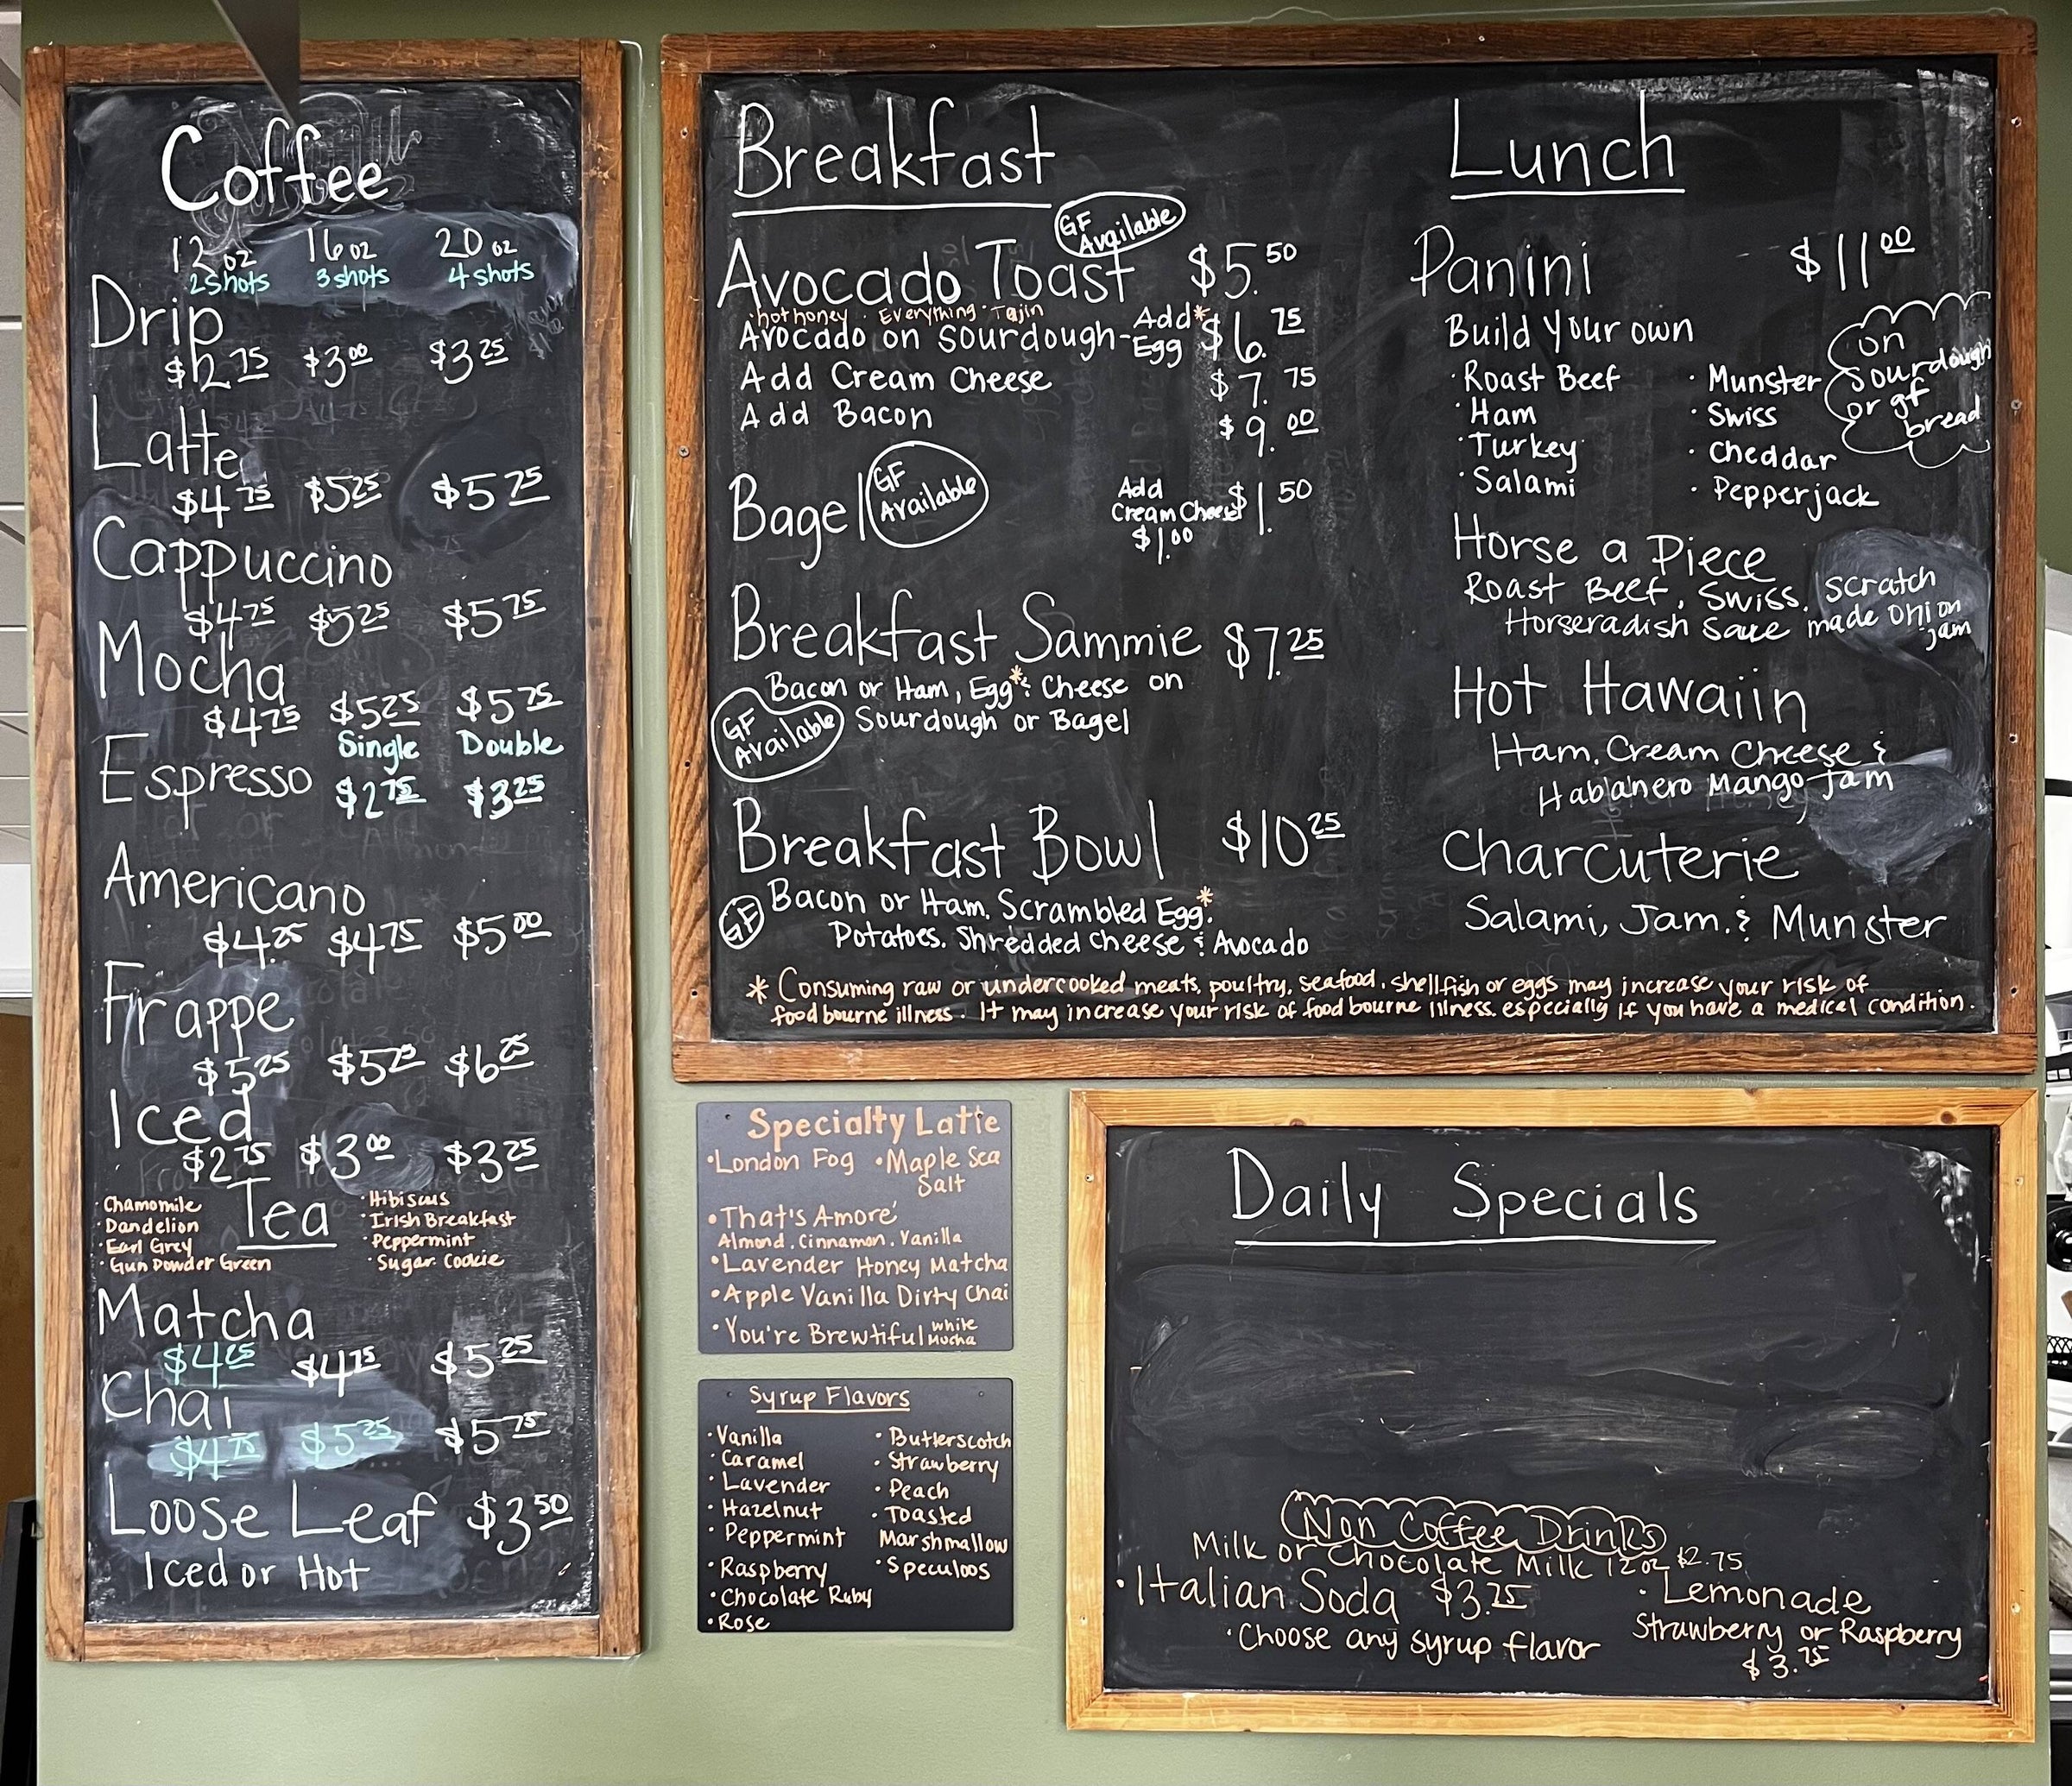 Coffee
12 oz 16 oz 20 oz
2 shots 3 shots 4 shots
Drip
$2.75 $3.00 $3.25
Latte
$4.75 $5.25 $5.75
Cappuccino
$4.75 $5.25 $5.75
Mocha
$4.75 $5.25 $5.75
Single Double
Espresso $2.75 $3.25
Americano
$4.25 $4.75 $5.00
Frappe
$5.25 $5.75 $6.25
Iced
$2.75 $3.00 $3.25
Tea
· Chamomile
· Dandelion
· Earl Grey
· Gun Powder Green
· Hibiscus
· Irish Breakfast
· Peppermint
· Sugar Cookie
Matcha
$4.25 $4.75 $5.25
Chai
$4.75 $5.25 $5.75
Loose Leaf $3.50
Iced or Hot
Breakfast
GF Available
Avocado Toast $5.50
·hot honey · Everything · Tajin
Avocado on Sourdough - Add Egg* $6.75
Add Cream Cheese $7.75
Add Bacon $9.00
Bagel GF Available Add Cream Cheese $1.00 $1.50
Breakfast Sammie $7.25
Bacon or Ham, Egg* & Cheese on
Sourdough or Bagel
GF Available
Breakfast Bowl $10.25
GF Bacon or Ham, Scrambled Egg*,
Potatoes, Shredded Cheese & Avocado
Lunch
Panini $11.00
Build Your own
on Sourdough or gf bread
· Roast Beef · Munster
· Ham · Swiss
· Turkey · Cheddar
· Salami · Pepperjack
Horse a Piece
Roast Beef, Swiss, Scratch
Horseradish Sauce made onion
jam
Hot Hawaiin
Ham, Cream Cheese &
Habanero Mango Jam
Charcuterie
Salami, Jam, & Munster
* Consuming raw or undercooked meats, poultry, seafood, shellfish or eggs may increase your risk of
foodbourne illness. It may increase your risk of foodbourne illness, especially if you have a medical condition.
Specialty Latte
· London Fog · Maple Sea
Salt
· That's Amore'
Almond, Cinnamon, Vanilla
· Lavender Honey Matcha
· Apple Vanilla Dirty Chai
· You're Brewtiful White Mocha
Syrup Flavors
· Vanilla
· Caramel
· Lavender
· Hazelnut
· Peppermint
· Raspberry
· Chocolate Ruby
· Rose
· Butterscotch
· Strawberry
· Peach
· Toasted
Marshmallow
· Speculoos
Daily Specials
Non Coffee Drinks
Milk or Chocolate Milk 12oz $2.75
· Italian Soda $3.25
· Choose any syrup flavor
· Lemonade
Strawberry or Raspberry
$3.75